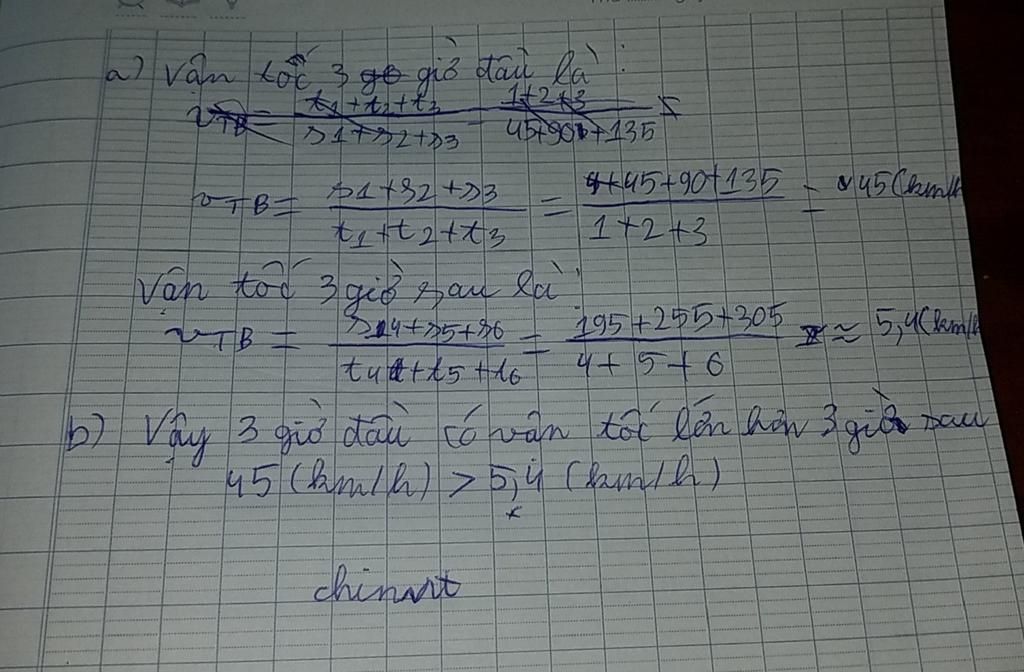 a) Vận tốc 3 giờ đầu là:
vTB = t1+t2+t3 / s1+s2+s3 = 1+2+3 / 45+90+135 =
vTB = s1+s2+s3 / t1+t2+t3 = 45+90+135 / 1+2+3 = 45(km/h
Vận tốc 3 giờ sau là
vTB = s4+s5+s6 / t4+t5+t6 = 195+255+305 / 4+5+6 ≈ 5,4(km/h
b) Vậy 3 giờ đầu có vân tốc lớn hơn 3 giờ sau
45 (km/h) > 5,4 (km/h)